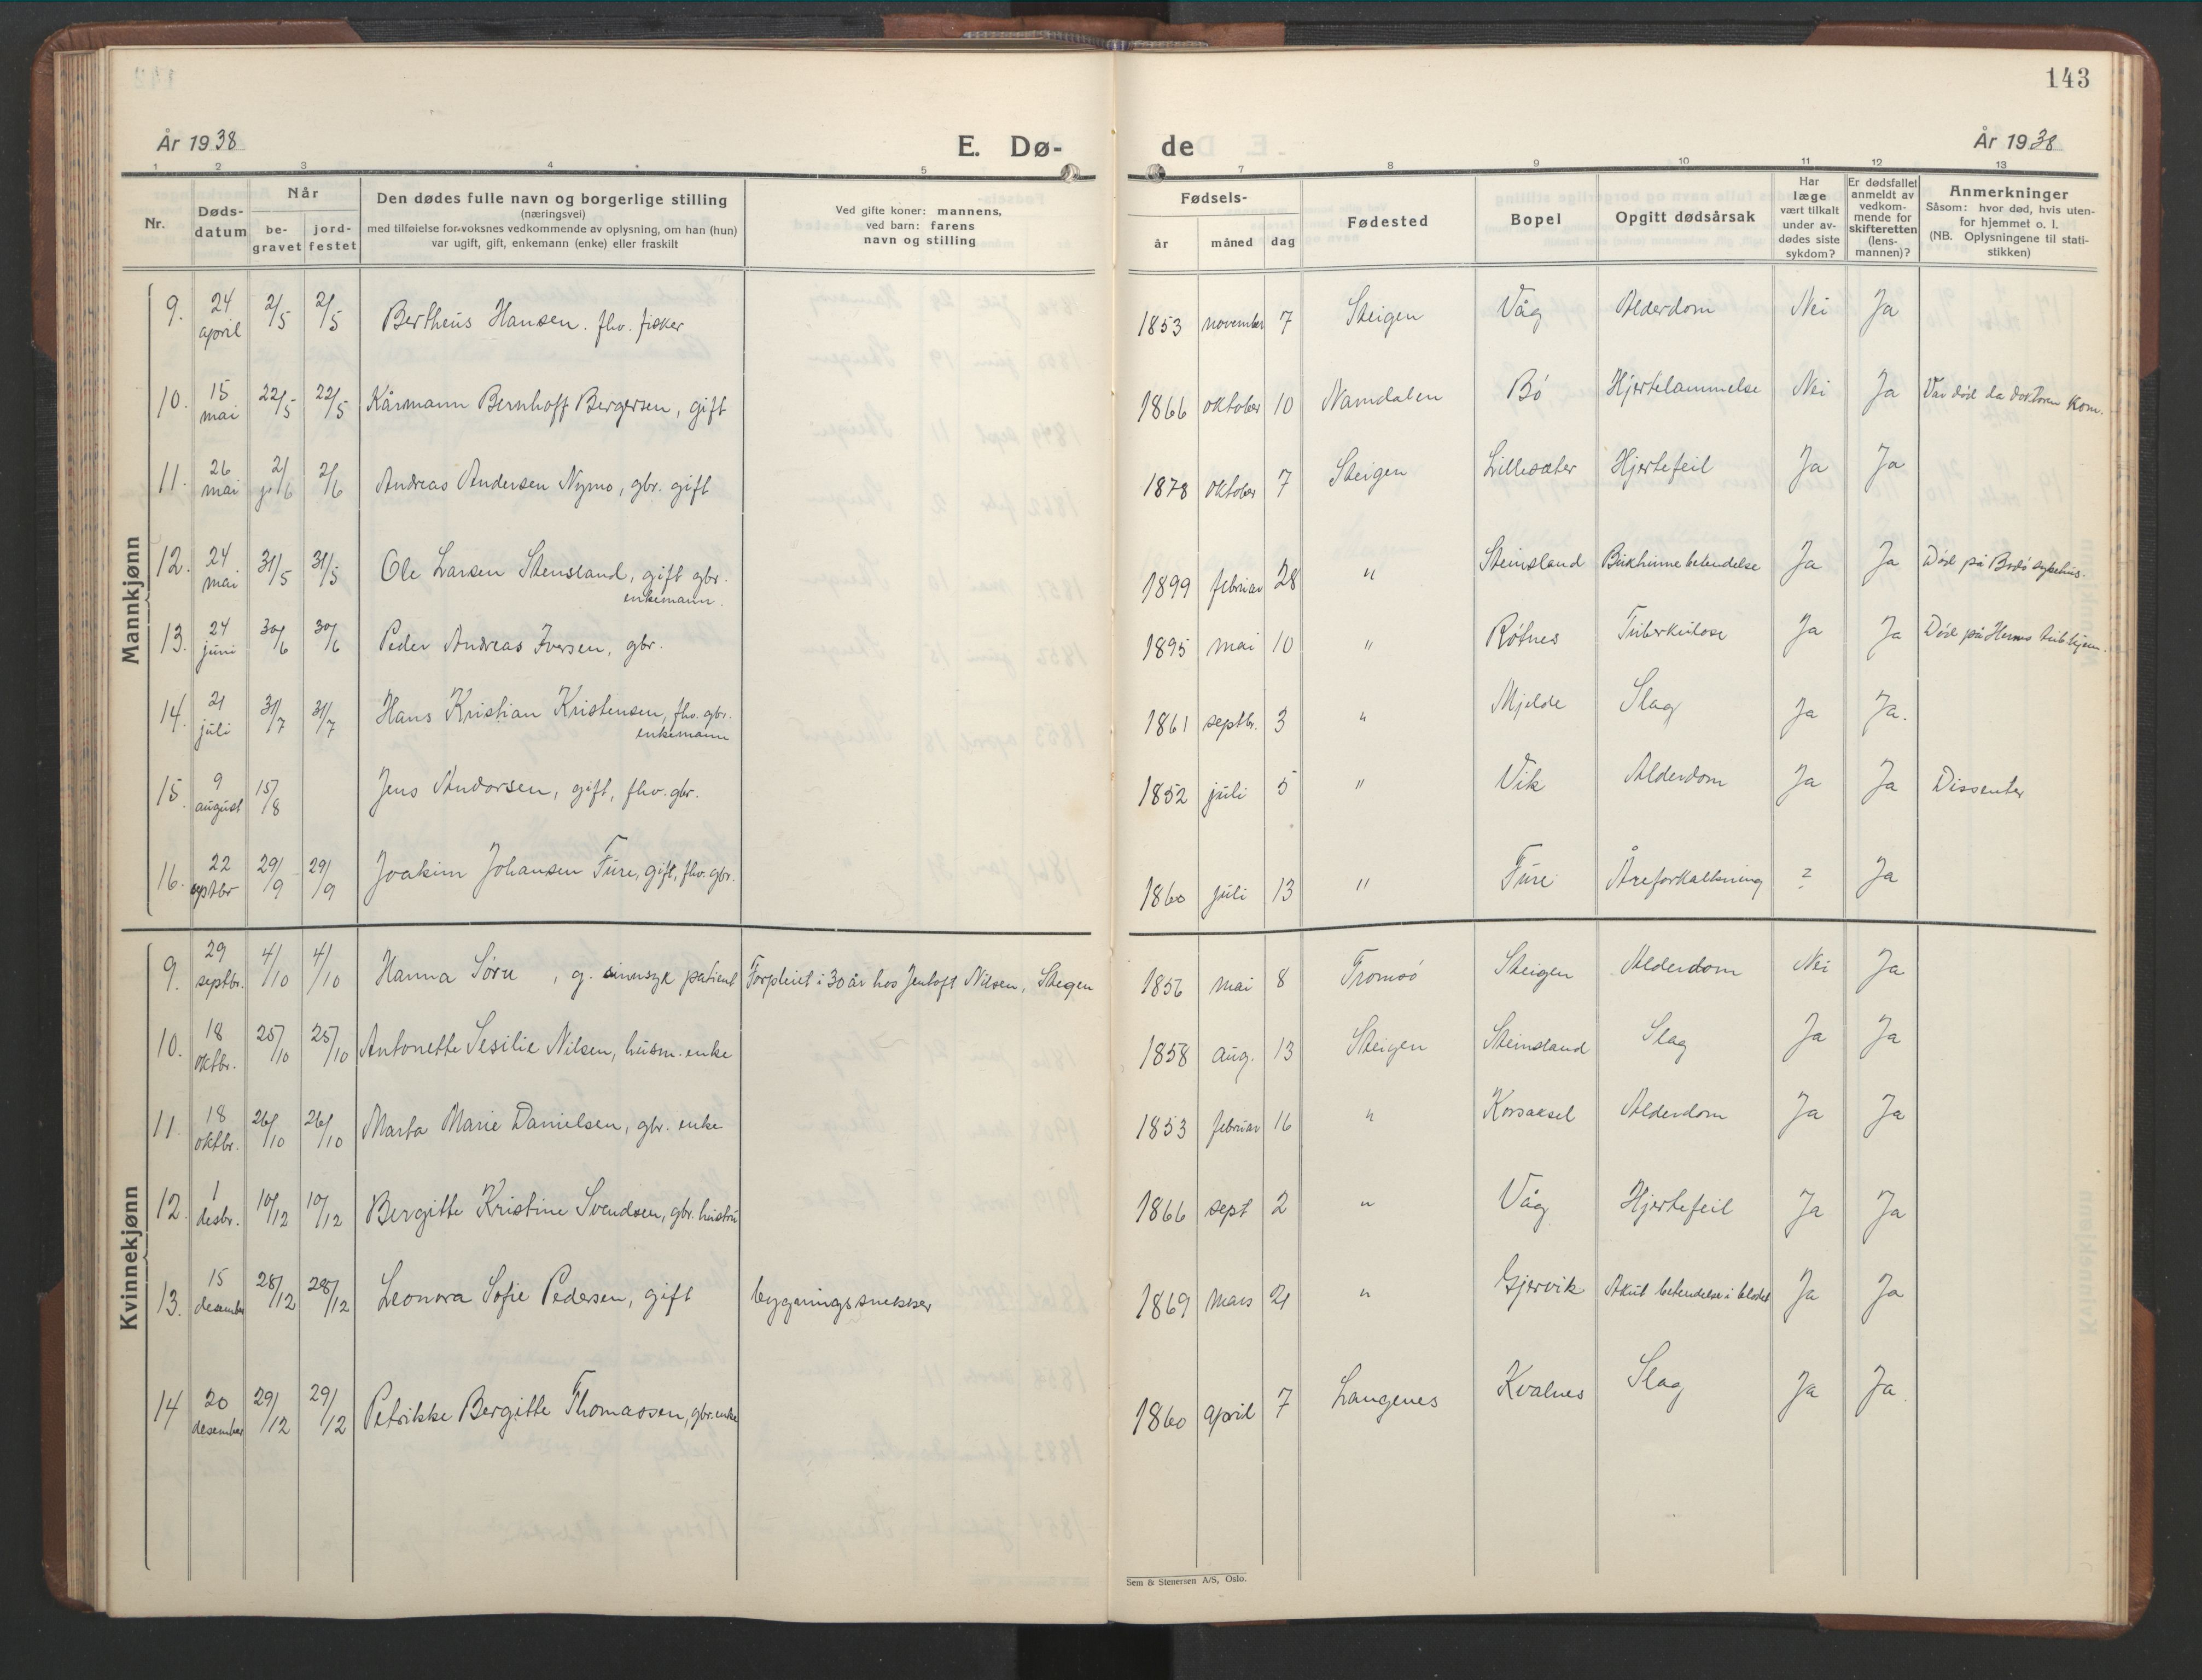 143
År 1938 E. Dø- de År 1938
1 2 3 4 5 7 8 9 10 11 12 13
Nr.
Døds-
datum
Når
be-
gravet
jord-
festet
Den dødes fulle navn og borgerlige stilling
(næringsvei)
med tilføielse for voksnes vedkommende av oplysning, om han (hun)
var ugift, gift, enkemann (enke) eller fraskilt
Ved gifte koner: mannens,
ved barn: farens
navn og stilling
Fødsels-
år måned dag
Fødested
Bopel
Opgitt dødsårsak
Har
læge
vært tilkalt
under av-
dødes siste
sykdom?
Er dødsfallet
anmeldt av
vedkom-
mende for
skifteretten
(lens-
mannen)?
Anmerkninger
Såsom: hvor død, hvis uten-
for hjemmet o. l.
(NB. Oplysningene til stati-
stikken)
Mannkjønn
9. 24 april 2/5 2/5 Bertheus Hansen. fhv. fisker 1853 november 7 Steigen Våg Alderdom Nei Ja
10. 15 mai 22/5 22/5 Kårmann Bernhoff Bergersen, gift 1866 oktober 10 Namdalen Bø Hjertelammelse Nei Ja Var død da doktoren kom.
11. 26 mai 2/6 2/6 Andreas Andersen Nymo, gbr. gift 1878 oktober 7 Steigen Lillesæter Hjertefeil Ja Ja
12. 24 mai 31/5 31/5 Ole Larsen Stensland, gift gbr.
enkemann.
1899 februar 28 " Steinsland Bukhinnebetendelse Ja Ja Død på Bodø sykehus.
13. 24 juni 30/6 30/6 Peder Andreas Iversen, gbr. 1895 mai 10 " Røtnes Tuberkulose Ja Ja Død på
14. 21 juli 31/7 31/7 Hans Kristian Kristensen, fhv. gbr.
enkemann
1861 septbr. 3 " Mjelde Slag Ja Ja.
15. 9 august 15/8 Jens Andorsen, gift, fhv. gbr. 1852 juli 5 " Vik Alderdom Ja Ja Dissenter
16. 22 septbr 29/9 29/9 Joakim Johansen Fure, gift, fhv. gbr. 1860 juli 13 " Fure Åreforkalkning ? Ja
Kvinnekjønn
9. 29 septbr. 4/10 4/10 Hanna Søre , g. sinnsyk patient Forpleiet i 30 år hos Jentoft Nilsen, Steigen 1856 mai 8 Tromsø Steigen Alderdom Nei Ja
10. 18 oktbr. 25/10 25/10 Antonette Sesilie Nilsen, husm. enke 1858 aug. 13 Steigen Steinsland Slag Ja Ja
11. 18 oktbr. 26/10 26/10 Marta Marie Danielsen, gbr. enke 1853 februar 16 " Korsaksel Alderdom Ja Ja
12. 1 desbr. 10/12 10/12 Bergitte Kristine Svendsen, gbr. hustru 1866 sept 2 " Våg Hjertefeil Ja Ja
13. 15 desember 28/12 28/12 Leonora Sofie Pedersen, gift bygningssnekker 1869 mars 21 " Gjervik Akut betendelse i blodet Ja Ja
14 20 desember 29/12 29/12 Petrikke Bergitte Thomassen, gbr. enke 1860 april 7 Langenes Kvalnes Slag Ja Ja.
Sem & Stenersen A/S, Oslo.